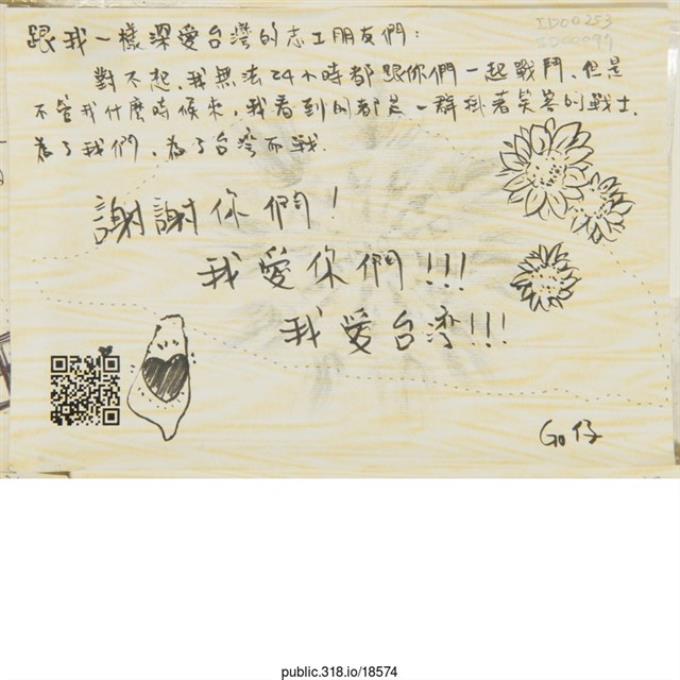 跟我一樣深愛台灣的志工朋友們：
ID00253
ID00099
對不起，我無法24小時都跟你們一起戰鬥，但是
不管我什麼時候來，我看到的都是一群掛著笑容的戰士，
為了我們，為了台灣而戰。
謝謝你們！
我愛你們!!!
我愛台灣!!!
Go仔
public.318.io/18574